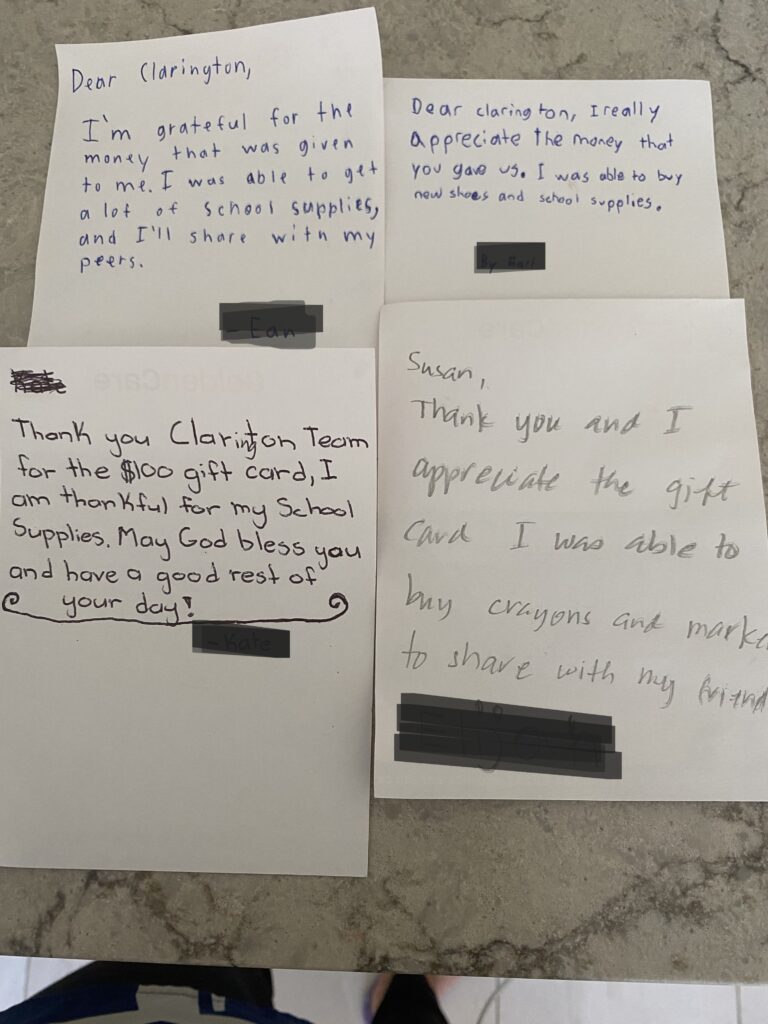 Dear Clarington,
I'm grateful for the
money that was given
to me. I was able to get
a lot of school supplies,
and I'll share with my
peers.
Dear clarington, I really
appreciate the money that
you gave us. I was able to buy
new shoes and school supplies.
Thank you Clarington Team
for the $100 gift card, I
am thankful for my School
Supplies. May God bless you
and have a good rest of
your day!
Susan,
Thank you and I
appreciate the gift
card I was able to
buy crayons and marke
to share with my friend